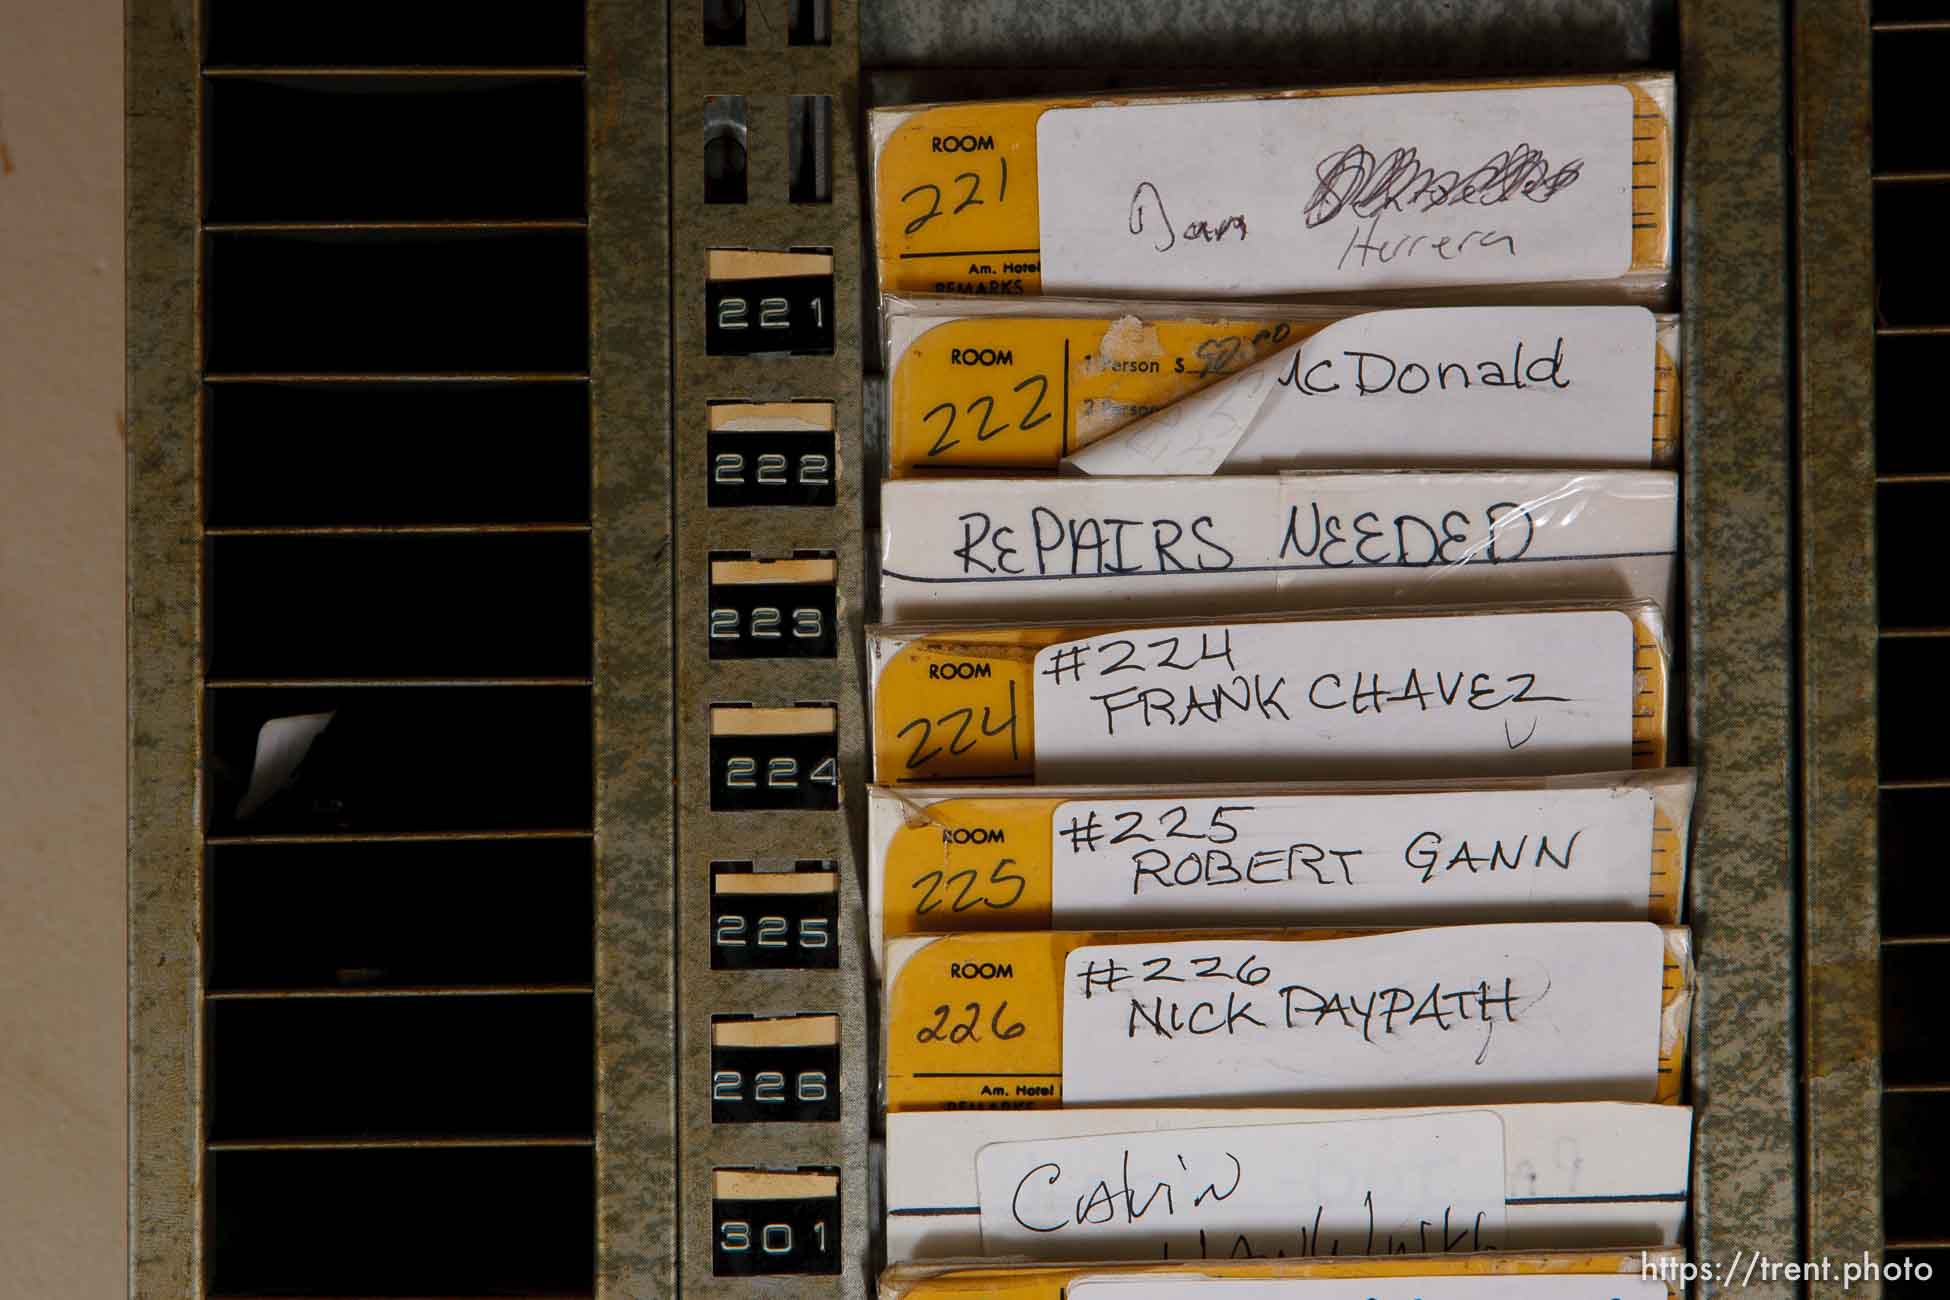 ROOM
221
Dan
Herrera
Am. Hotel
REMARKS
221
ROOM
222
1 Person $
2 Person
McDonald
222
REPAIRS NEEDED
223
ROOM
224
#224
FRANK CHAVEZ
224
ROOM
225
#225
ROBERT GANN
225
ROOM
226
#226
NICK DAYPATH
Am. Hotel
REMARKS
226
Calvin
301
https://trent.photo